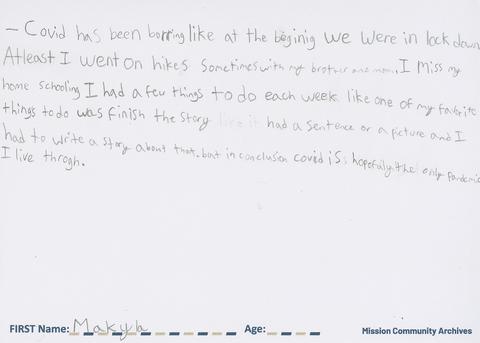 – Covid has been borring like at the beginig we were in lock down
Atleast I went on hikes sometimes with my brother and mom. I miss my
home schooling I had a few things to do each week like one of my favorite
things to do was finish the story like it had a sentence or a picture and I
had to write a story about that. but in conclusion covid is hopefully the only pandemic
I live throgh.
FIRST Name: Makyla Age: Mission Community Archives